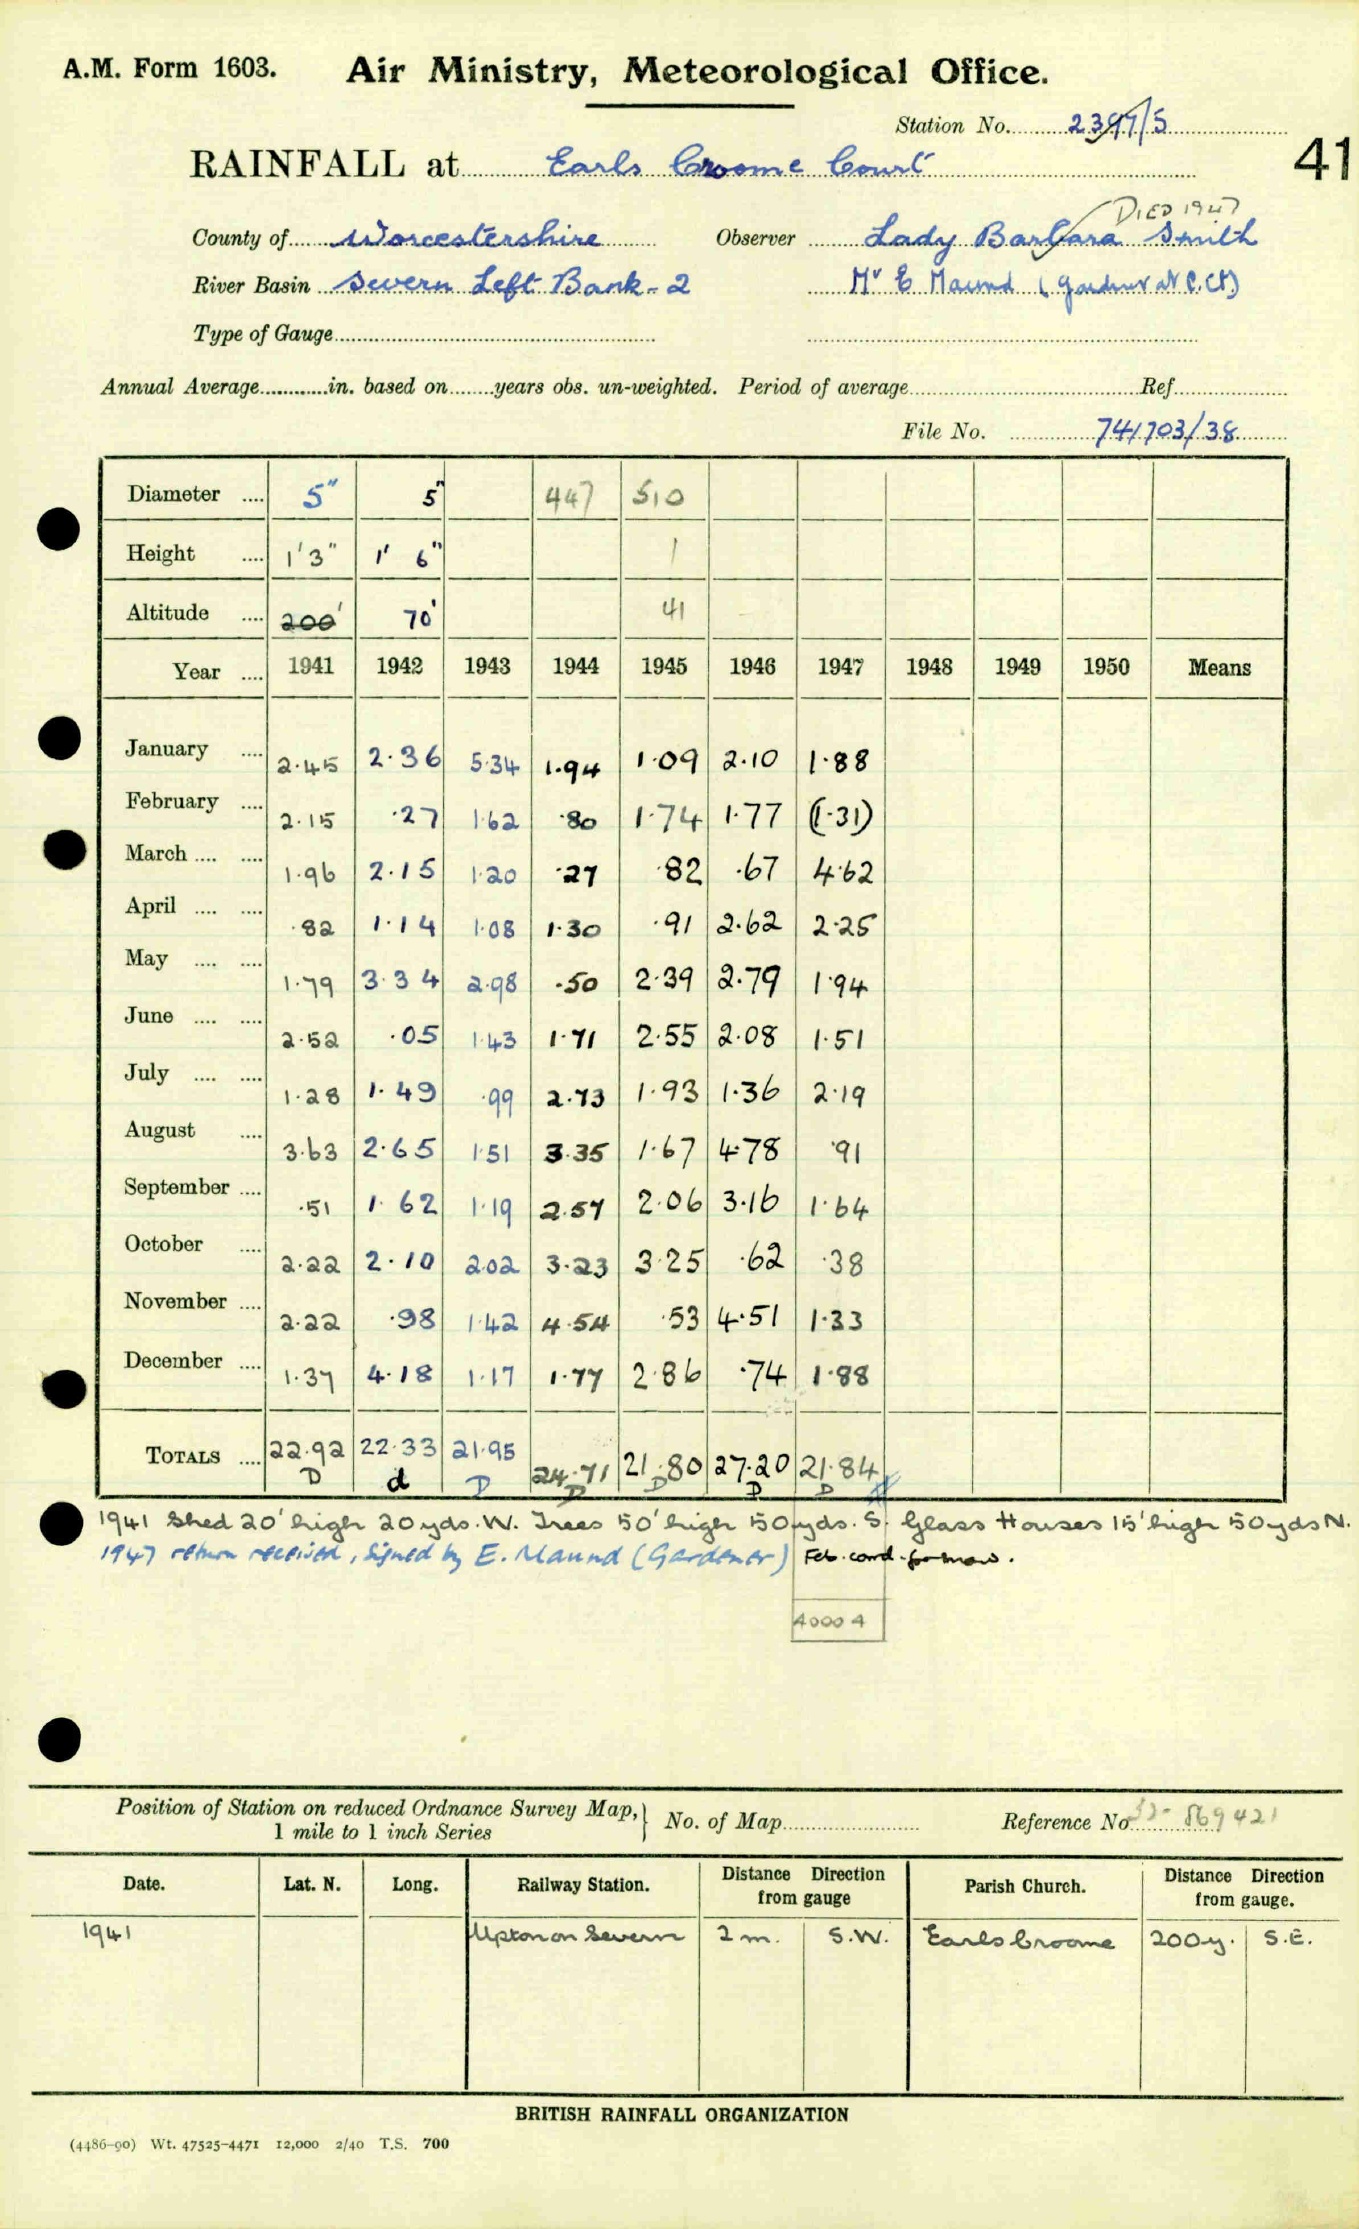 A.M. Form 1603. Air Ministry, Meteorological Office.
Station No. 2397/5
41
RAINFALL at Earls Croome Court
DIED 1947
County of Worcestershire Observer Lady Barbara Smith
River Basin Severn Left Bank - 2 Mr E Maund (gardener at C. Ct)
Type of Gauge
Annual Average in. based on years obs. un-weighted. Period of average Ref
File No. 741703/38
Diameter 5" 5" 447 510
Height 1'3" 1' 6" 1
Altitude 200' 70' 41
Year 1941 1942 1943 1944 1945 1946 1947 1948 1949 1950 Means
January 2.45 2.36 5.34 1.94 1.09 2.10 1.88
February 2.15 .27 1.62 .80 1.74 1.77 (1.31)
March 1.96 2.15 1.20 .27 .82 .67 4.62
April .82 1.14 1.08 1.30 .91 2.62 2.25
May 1.79 3.34 2.98 .50 2.39 2.79 1.94
June 2.52 .05 1.43 1.71 2.55 2.08 1.51
July 1.28 1.49 .99 2.73 1.93 1.36 2.19
August 3.63 2.65 1.51 3.35 1.67 4.78 .91
September .51 1.62 1.19 2.57 2.06 3.16 1.64
October 2.22 2.10 2.02 3.23 3.25 .62 .38
November 2.22 .98 1.42 4.54 .53 4.51 1.33
December 1.37 4.18 1.17 1.77 2.86 .74 1.88
TOTALS 22.92 22.33 21.95 24.71 21.80 27.20 21.84
D d D D D D D
1941 Shed 20' high 20 yds. W. Trees 50' high 50 yds. S. Glass Houses 15' high 50 yds N.
1947 return received, signed by E. Maund (Gardener) Feb. card
4000 4
Position of Station on reduced Ordnance Survey Map, 1 mile to 1 inch Series } No. of Map Reference No 32- 869421
Date. Lat. N. Long. Railway Station. Distance Direction from gauge Parish Church. Distance Direction from gauge.
1941 Upton on Severn 2 m. S.W. Earls Croome 200 y. S.E.
BRITISH RAINFALL ORGANIZATION
(4486-90) Wt. 47525-4471 12,000 2/40 T.S. 700